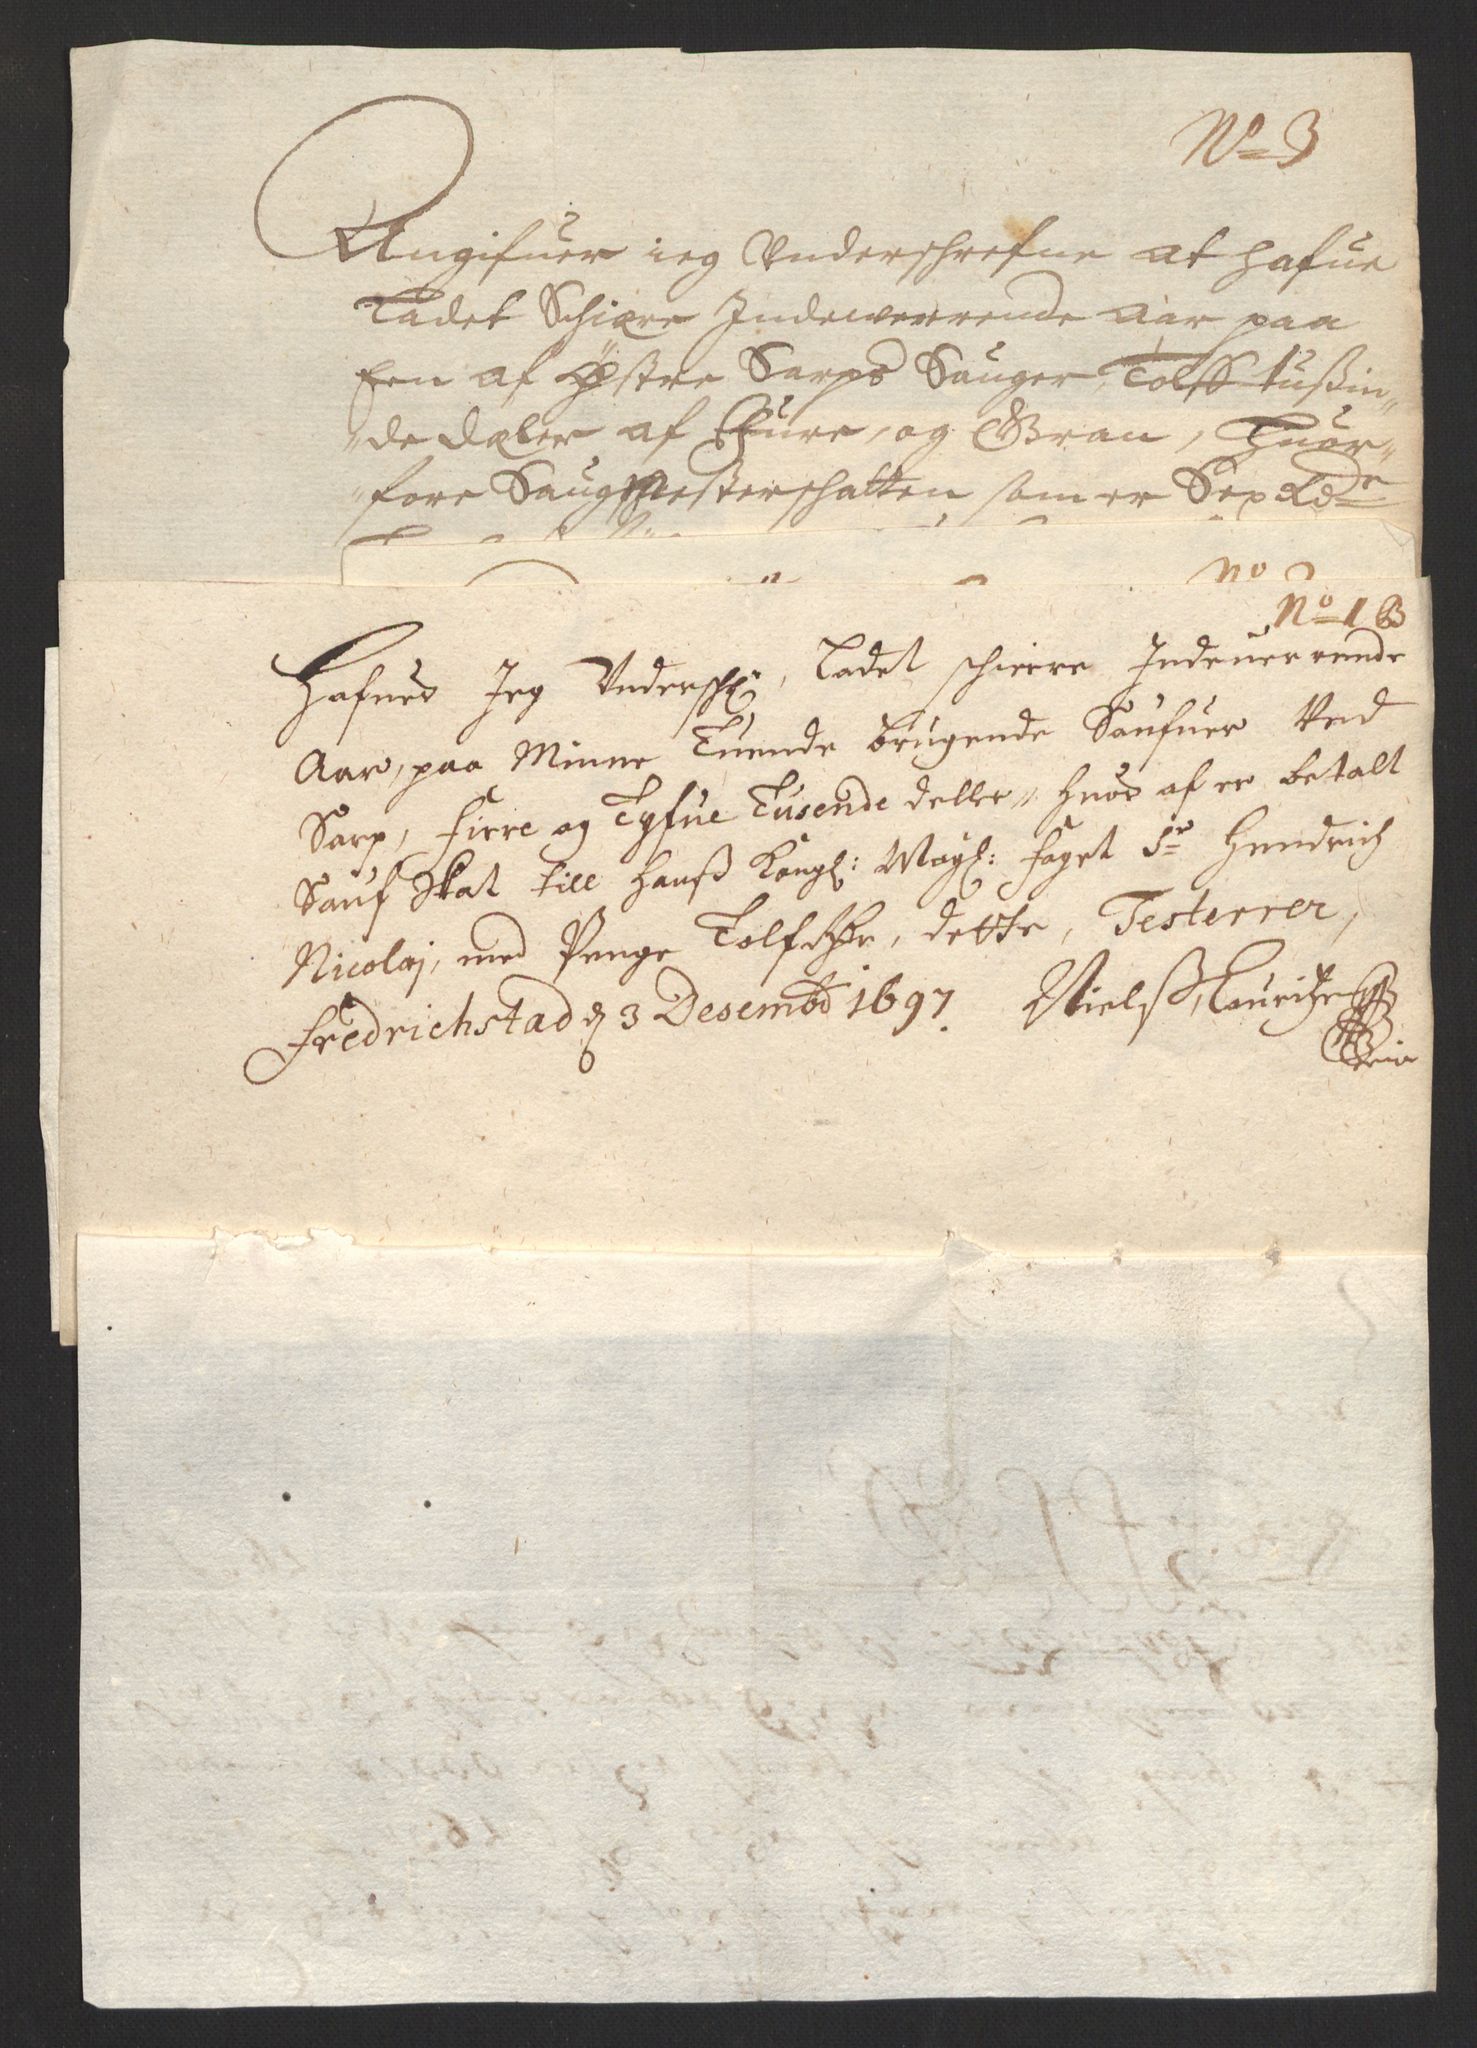 No 3
Angifuer ieg Underschrefne at hafue
Ladet Schiære Indewerrende Aar paa
Een af Ÿstre Sarps Sauger, Tolff tußin„
„de dæler af Fure, og Gran, Huor„
„fore Saugmesterschatten som er Sex Rdr
No 2
No 1 B
Hafuer Jeg Underschr: Ladet schierre Indeuerrende
Aar, paa Minne Tuende brugende Saufuer Ved
Sarp, firre og Tyfue Tusende deller, huor af er betalt
Sauf Skat till Hanß Kongl: Mayt: foget Sr Hendrich
Nicolaj, med Penge Tolf Rdr, dette, Testerrer,
Fredrichstad d 3 Desembr 1697. Nielß Lauritz